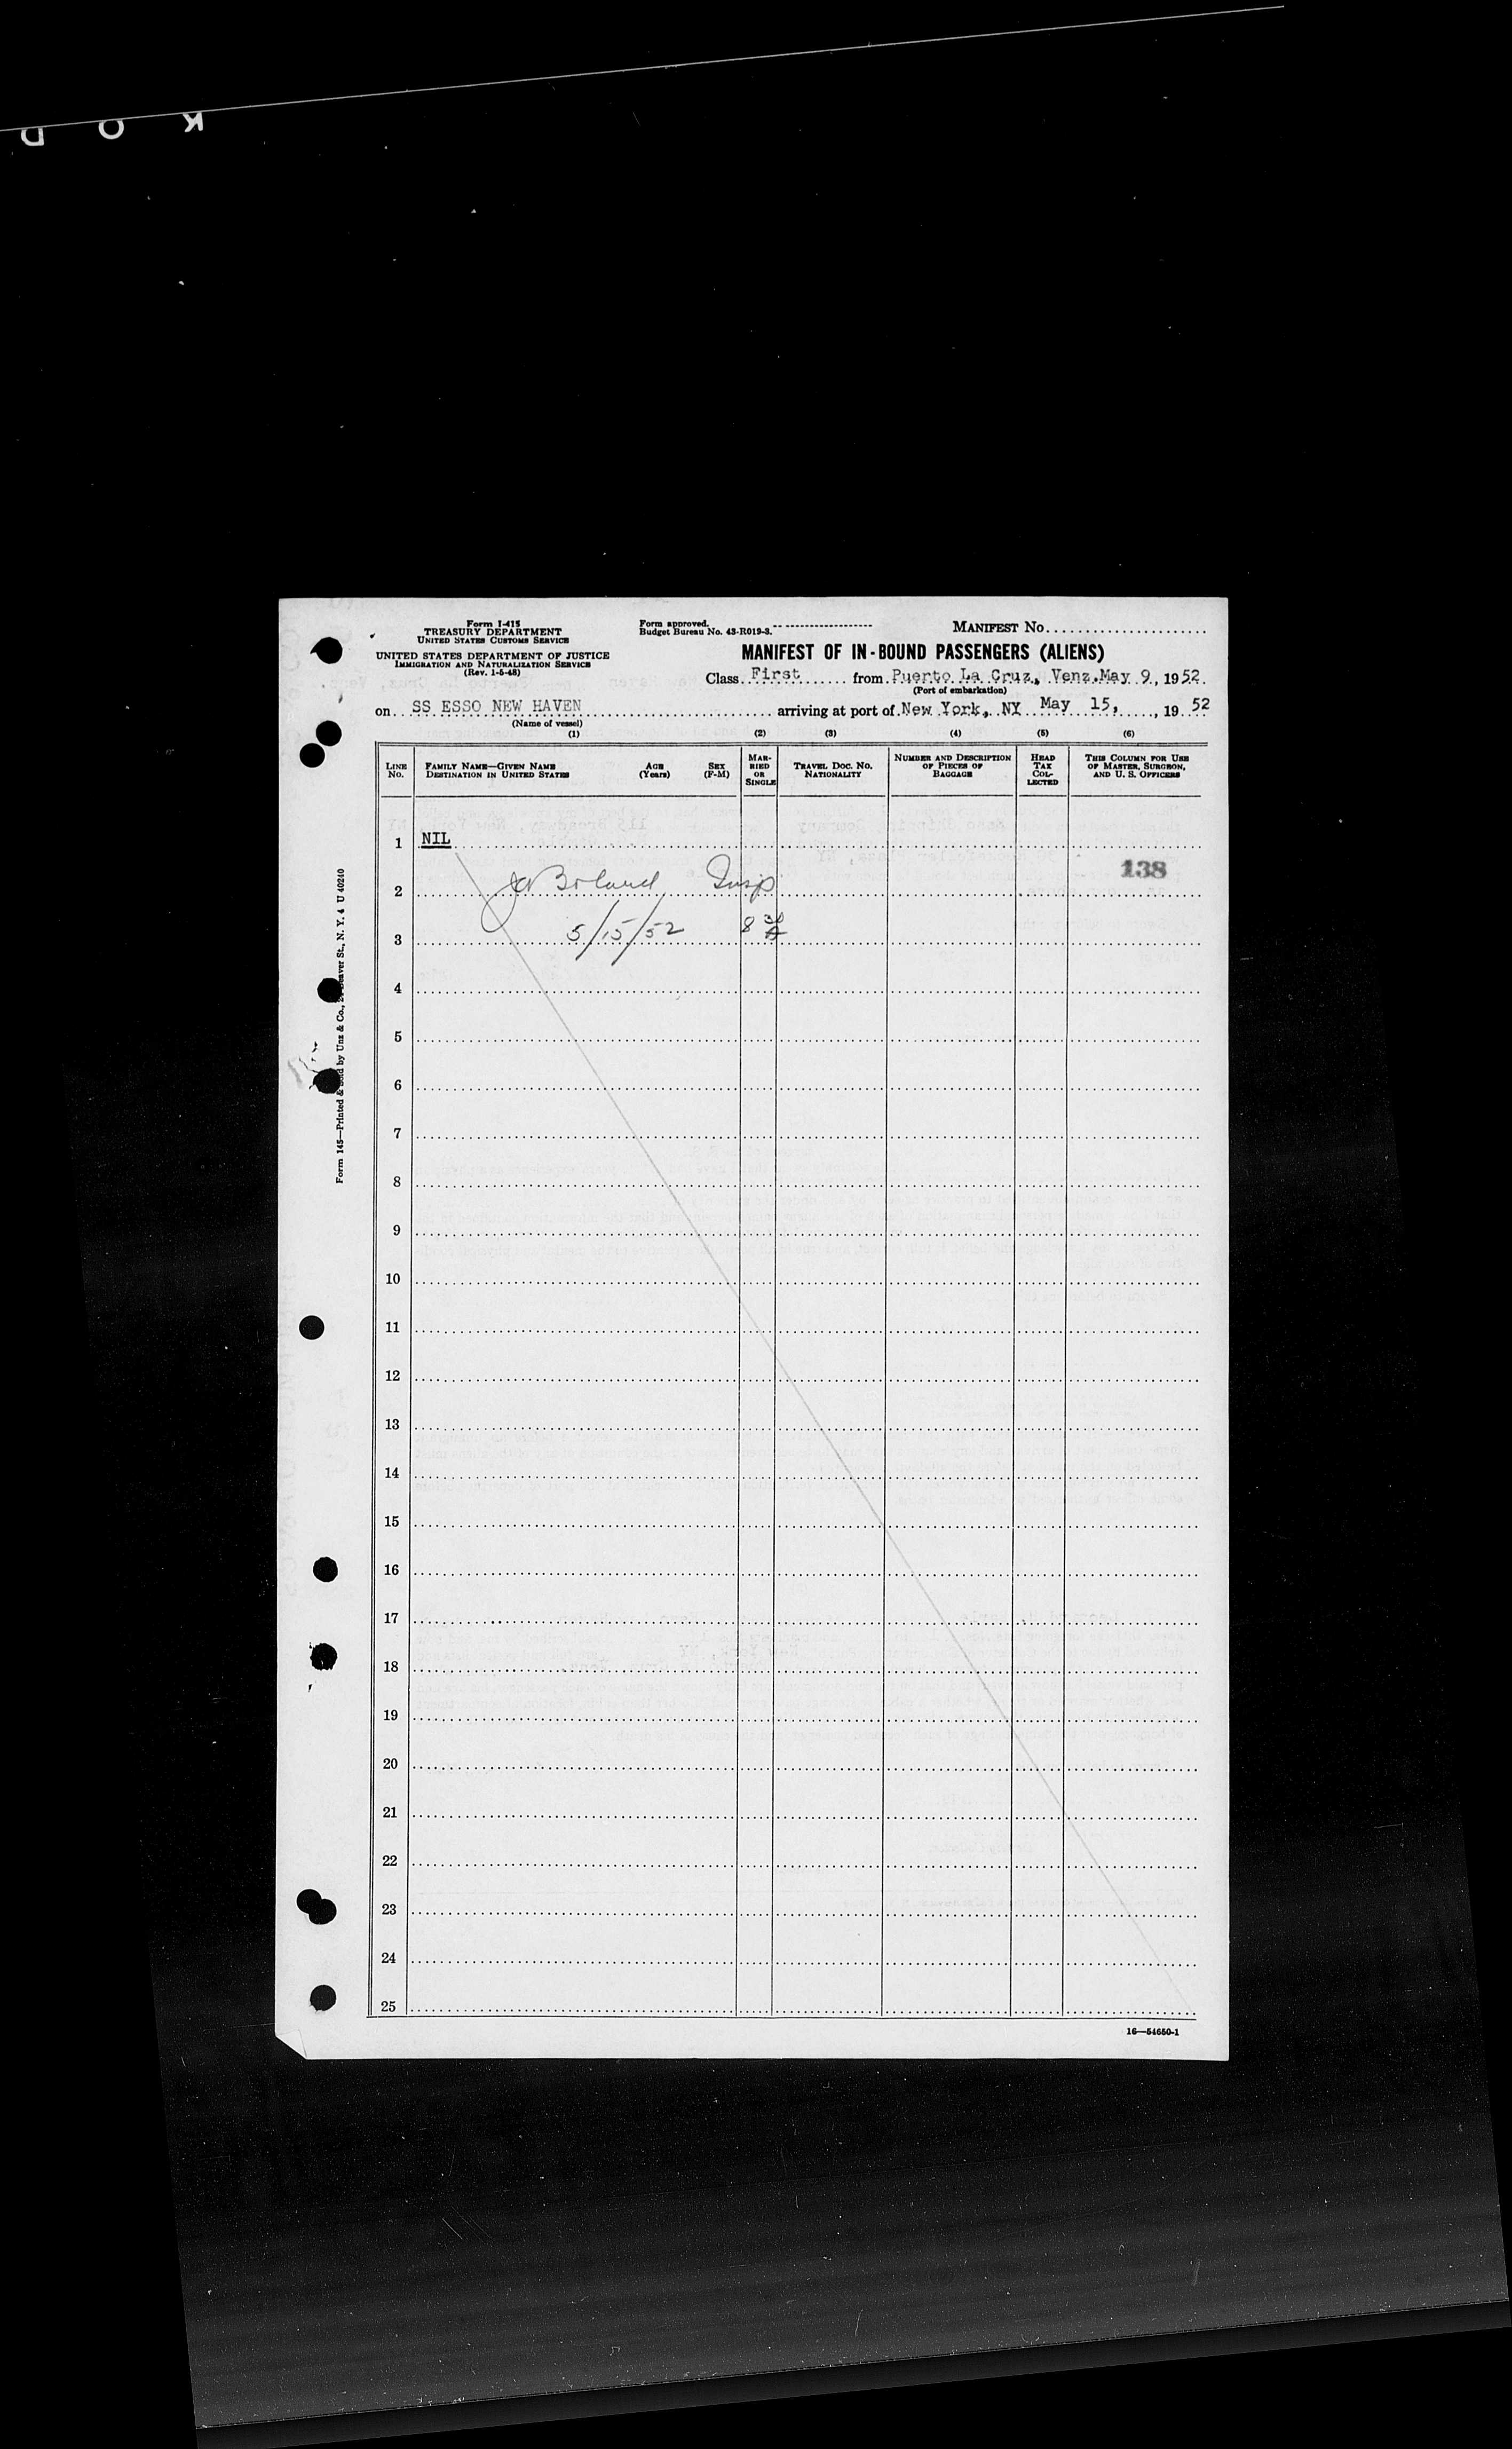 K O D
Form I-415
TREASURY DEPARTMENT
UNITED STATES CUSTOMS SERVICE
UNITED STATES DEPARTMENT OF JUSTICE
IMMIGRATION AND NATURALIZATION SERVICE
(Rev. 1-5-48)
Form approved.
Budget Bureau No. 43-R019-3.
MANIFEST No.
MANIFEST OF IN-BOUND PASSENGERS (ALIENS)
Class First from Puerto La Cruz, Venz. May 9, 1952
(Port of embarkation)
on SS ESSO NEW HAVEN arriving at port of New York, NY May 15, , 19 52
(Name of vessel)
(1) (2) (3) (4) (5) (6)
LINE No. FAMILY NAME—GIVEN NAME DESTINATION IN UNITED STATES AGE (Years) SEX (F-M) MARRIED OR SINGLE TRAVEL DOC. NO. NATIONALITY NUMBER AND DESCRIPTION OF PIECES OF BAGGAGE HEAD TAX COLLECTED THIS COLUMN FOR USE OF MASTER, SURGEON, AND U. S. OFFICERS
1 NIL
138
2 Boland Insp
3 5/15/52 8
4
5
6
7
8
9
10
11
12
13
14
15
16
17
18
19
20
21
22
23
24
25
16—54650-1
Form 145—Printed & Sold by Unz & Co., Beaver St., N. Y. 4 U 40240